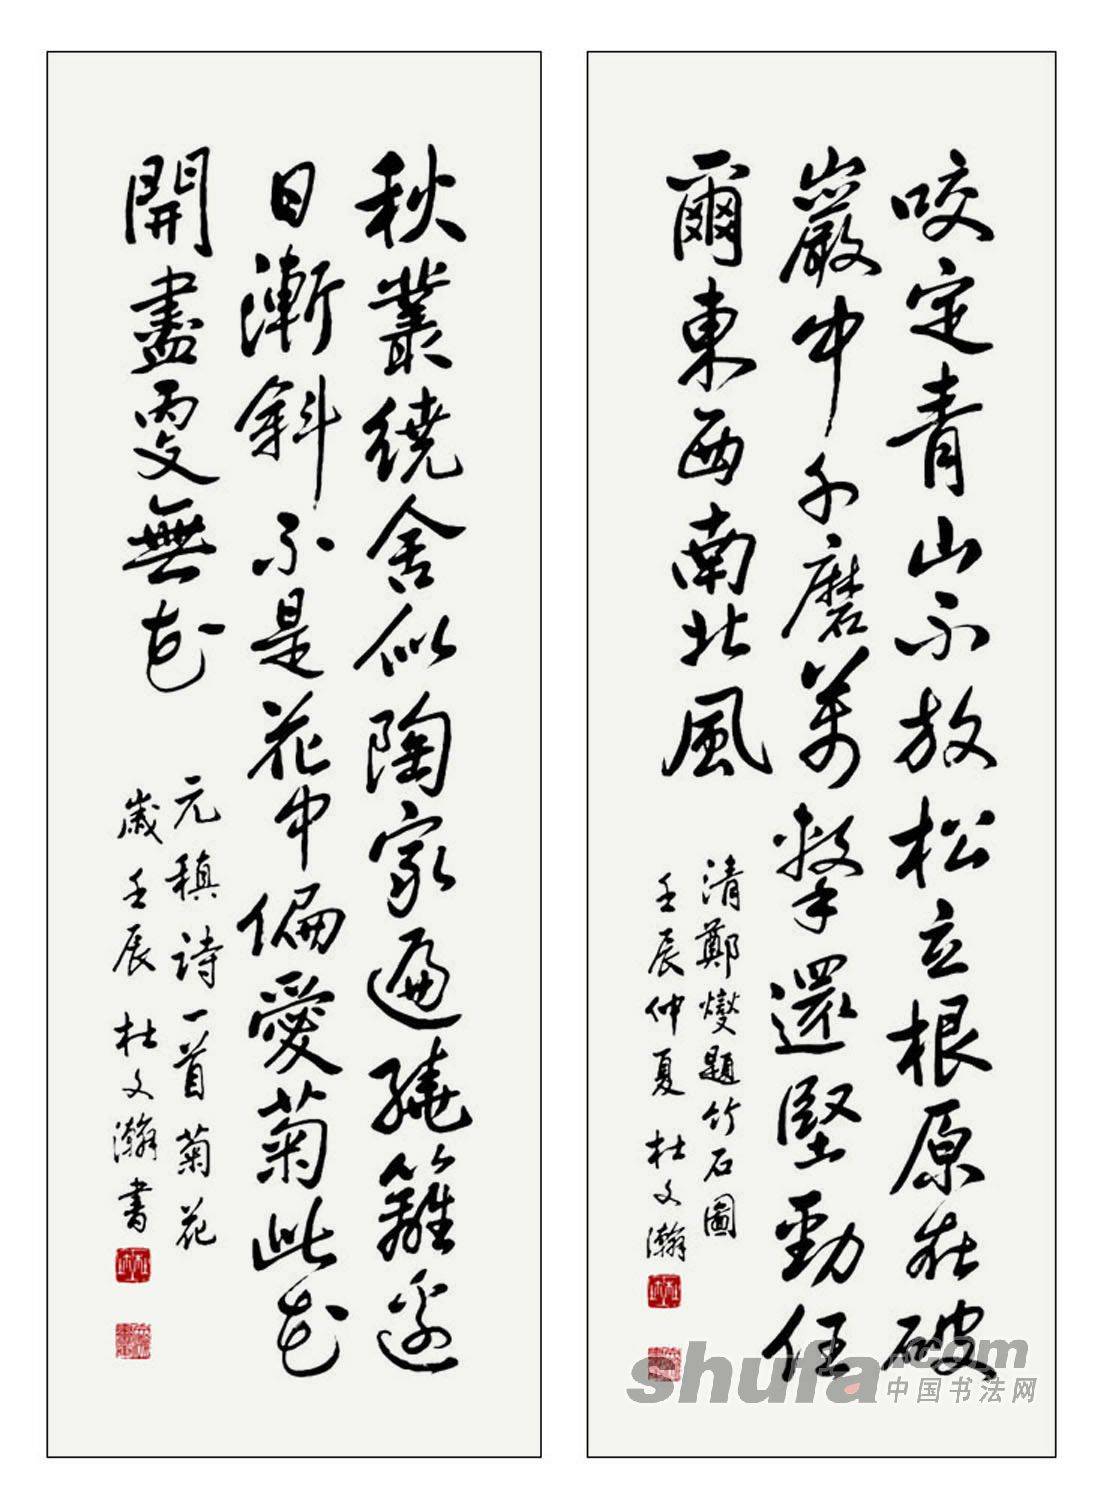 咬定青山不放松立根原在破
巖中千磨萬擊還堅勁任
爾東西南北風
清鄭燮題竹石圖
壬辰仲夏 杜文瀚
秋叢繞舍似陶家遍繞籬邊
日漸斜不是花中偏愛菊此花
開盡更無花
元稹詩一首菊花
歲壬辰 杜文瀚書
shufa.com
中国书法网